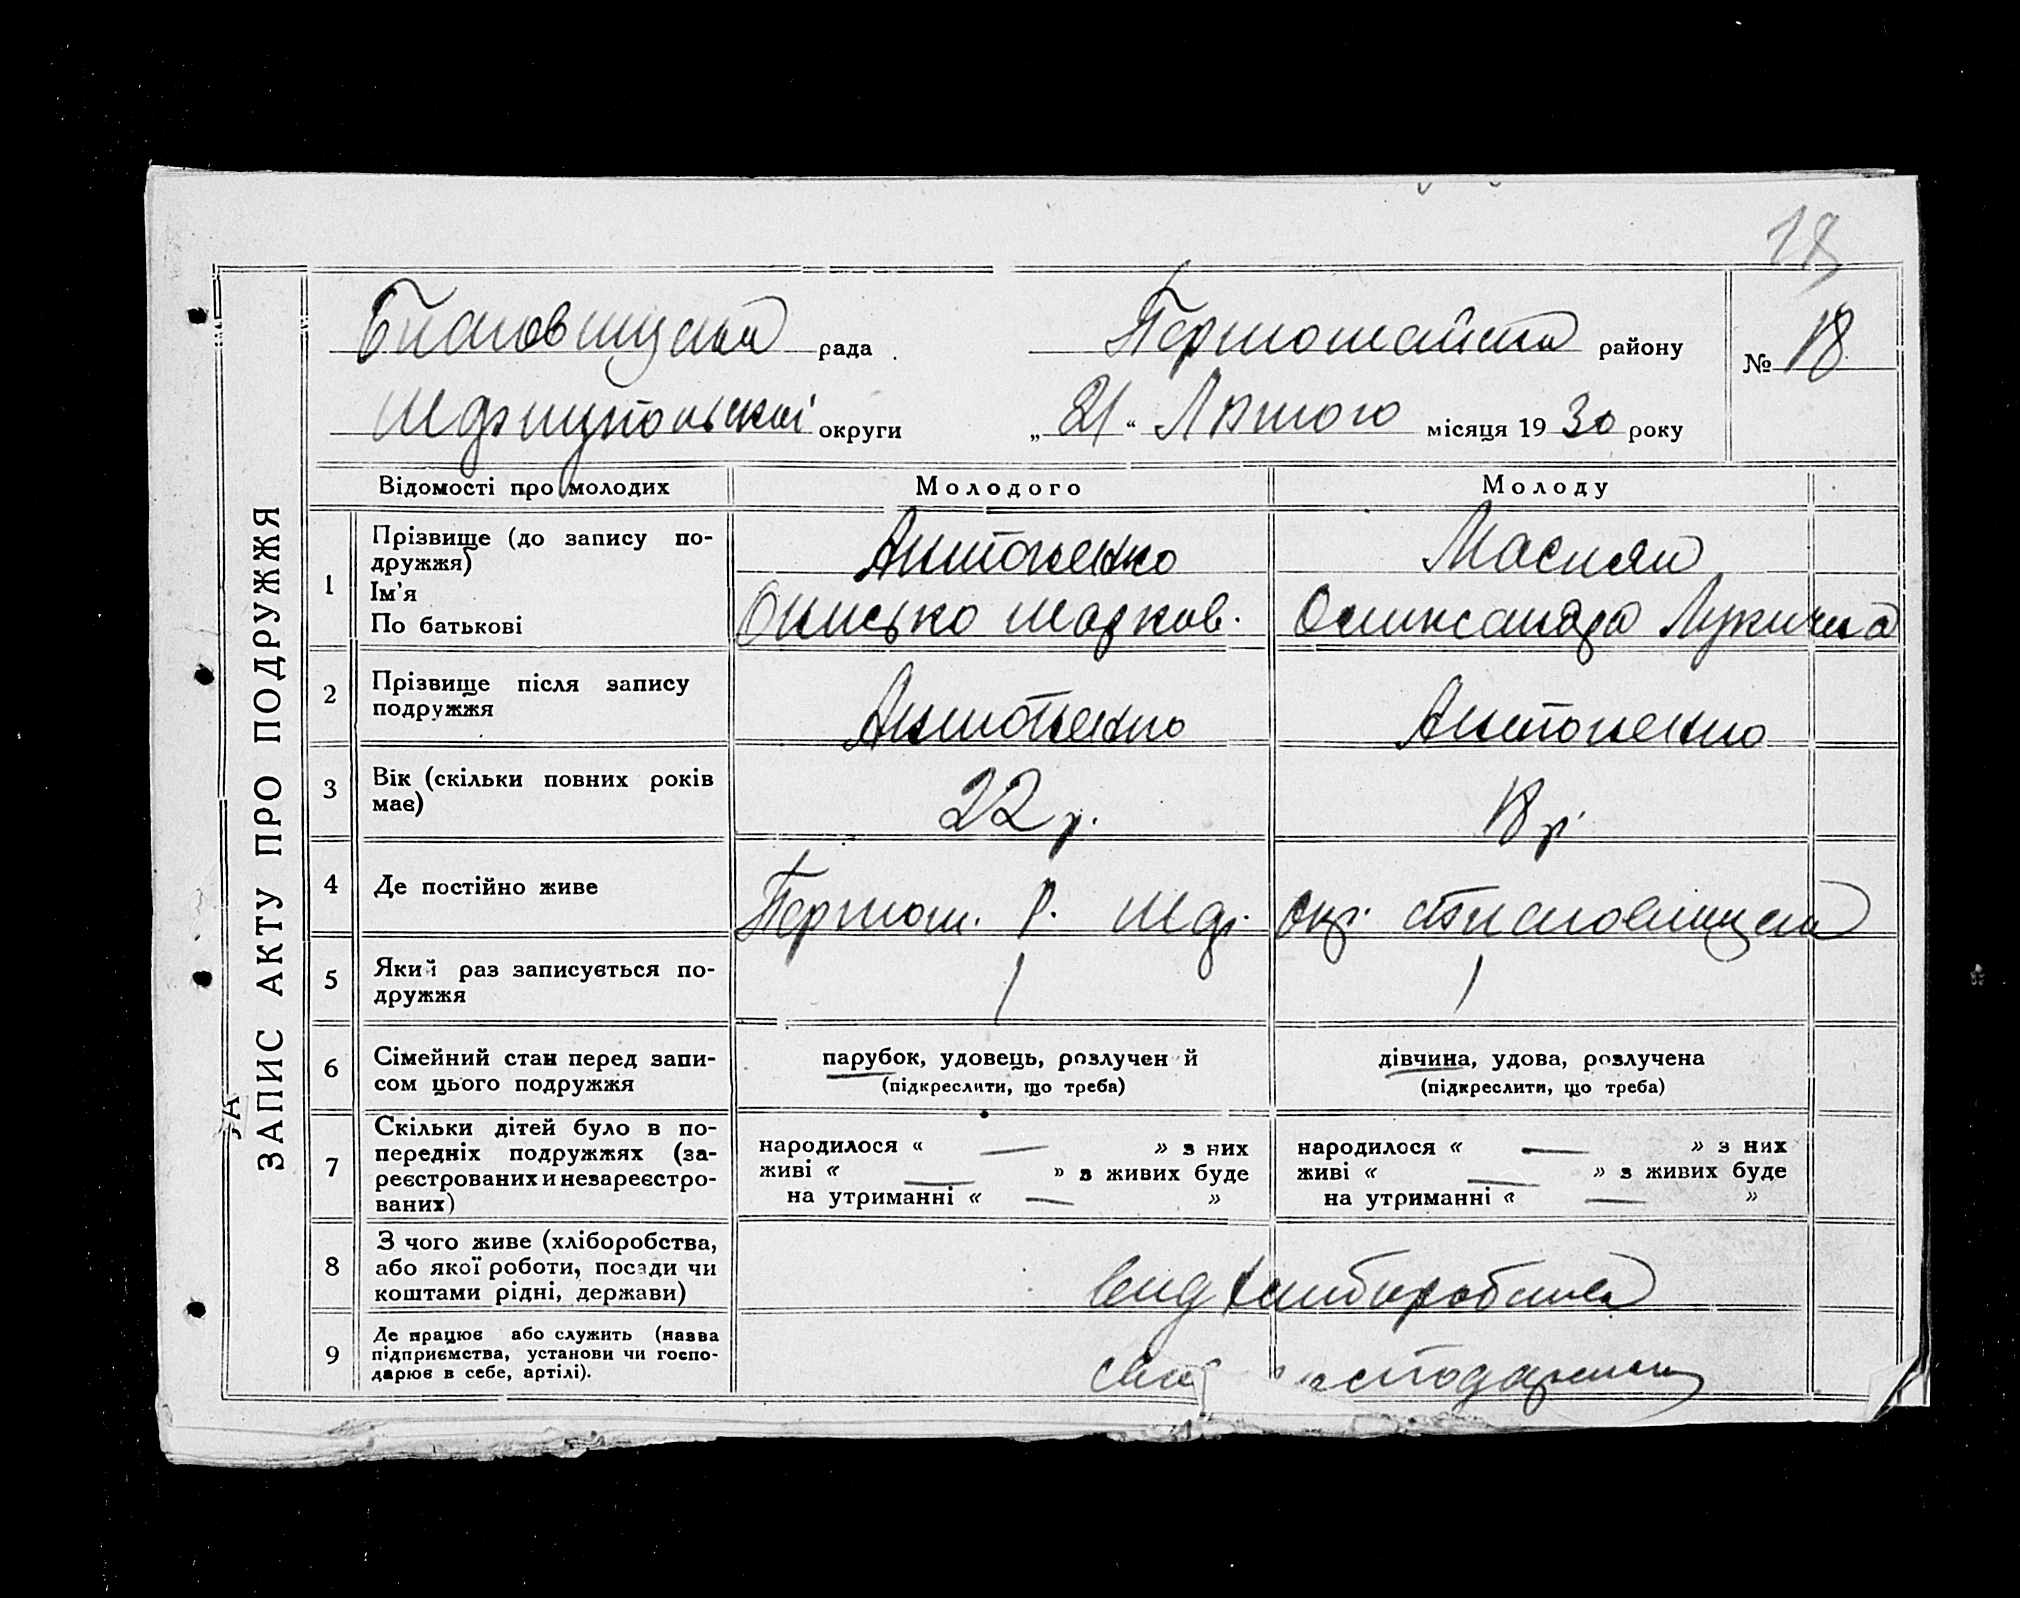 18
Благовищенська рада Першомайська району № 18
Маріупольскої округи „21“ Лютого місяця 1930 року
ЗАПИС АКТУ ПРО ПОДРУЖЖЯ
Відомості про молодих Молодого Молоду
1 Прізвище (до запису по-
дружжя) Антоненко Маслян
Ім'я
По батькові Онисько Марков. Олександра Лукична
2 Прізвище після запису
подружжя Антоненко Антоненко
3 Вік (скільки повних років
має) 22 р. 18 р.
4 Де постійно живе Першом. Р. Мар. окр.
5 Який раз записується по-
дружжя 1 1
6 Сімейний стан перед запи-
сом цього подружжя парубок, удовець, розлучен й дівчина, удова, розлучена
(підкреслити, що треба) (підкреслити, що треба)
7 Скільки дітей було в по-
передніх подружжях (за-
реєстрованих и незареєстро-
ваних) народилося « — » з них народилося « — » з них
живі « — » з живих буде живі « — » з живих буде
на утриманні « — » на утриманні « — »
8 З чого живе (хліборобства,
або якої роботи, посади чи
коштами рідні, держави) вид хлиборобства
9 Де працює або служить (назва
підприємства, установи чи госпо-
дарює в себе, артілі).